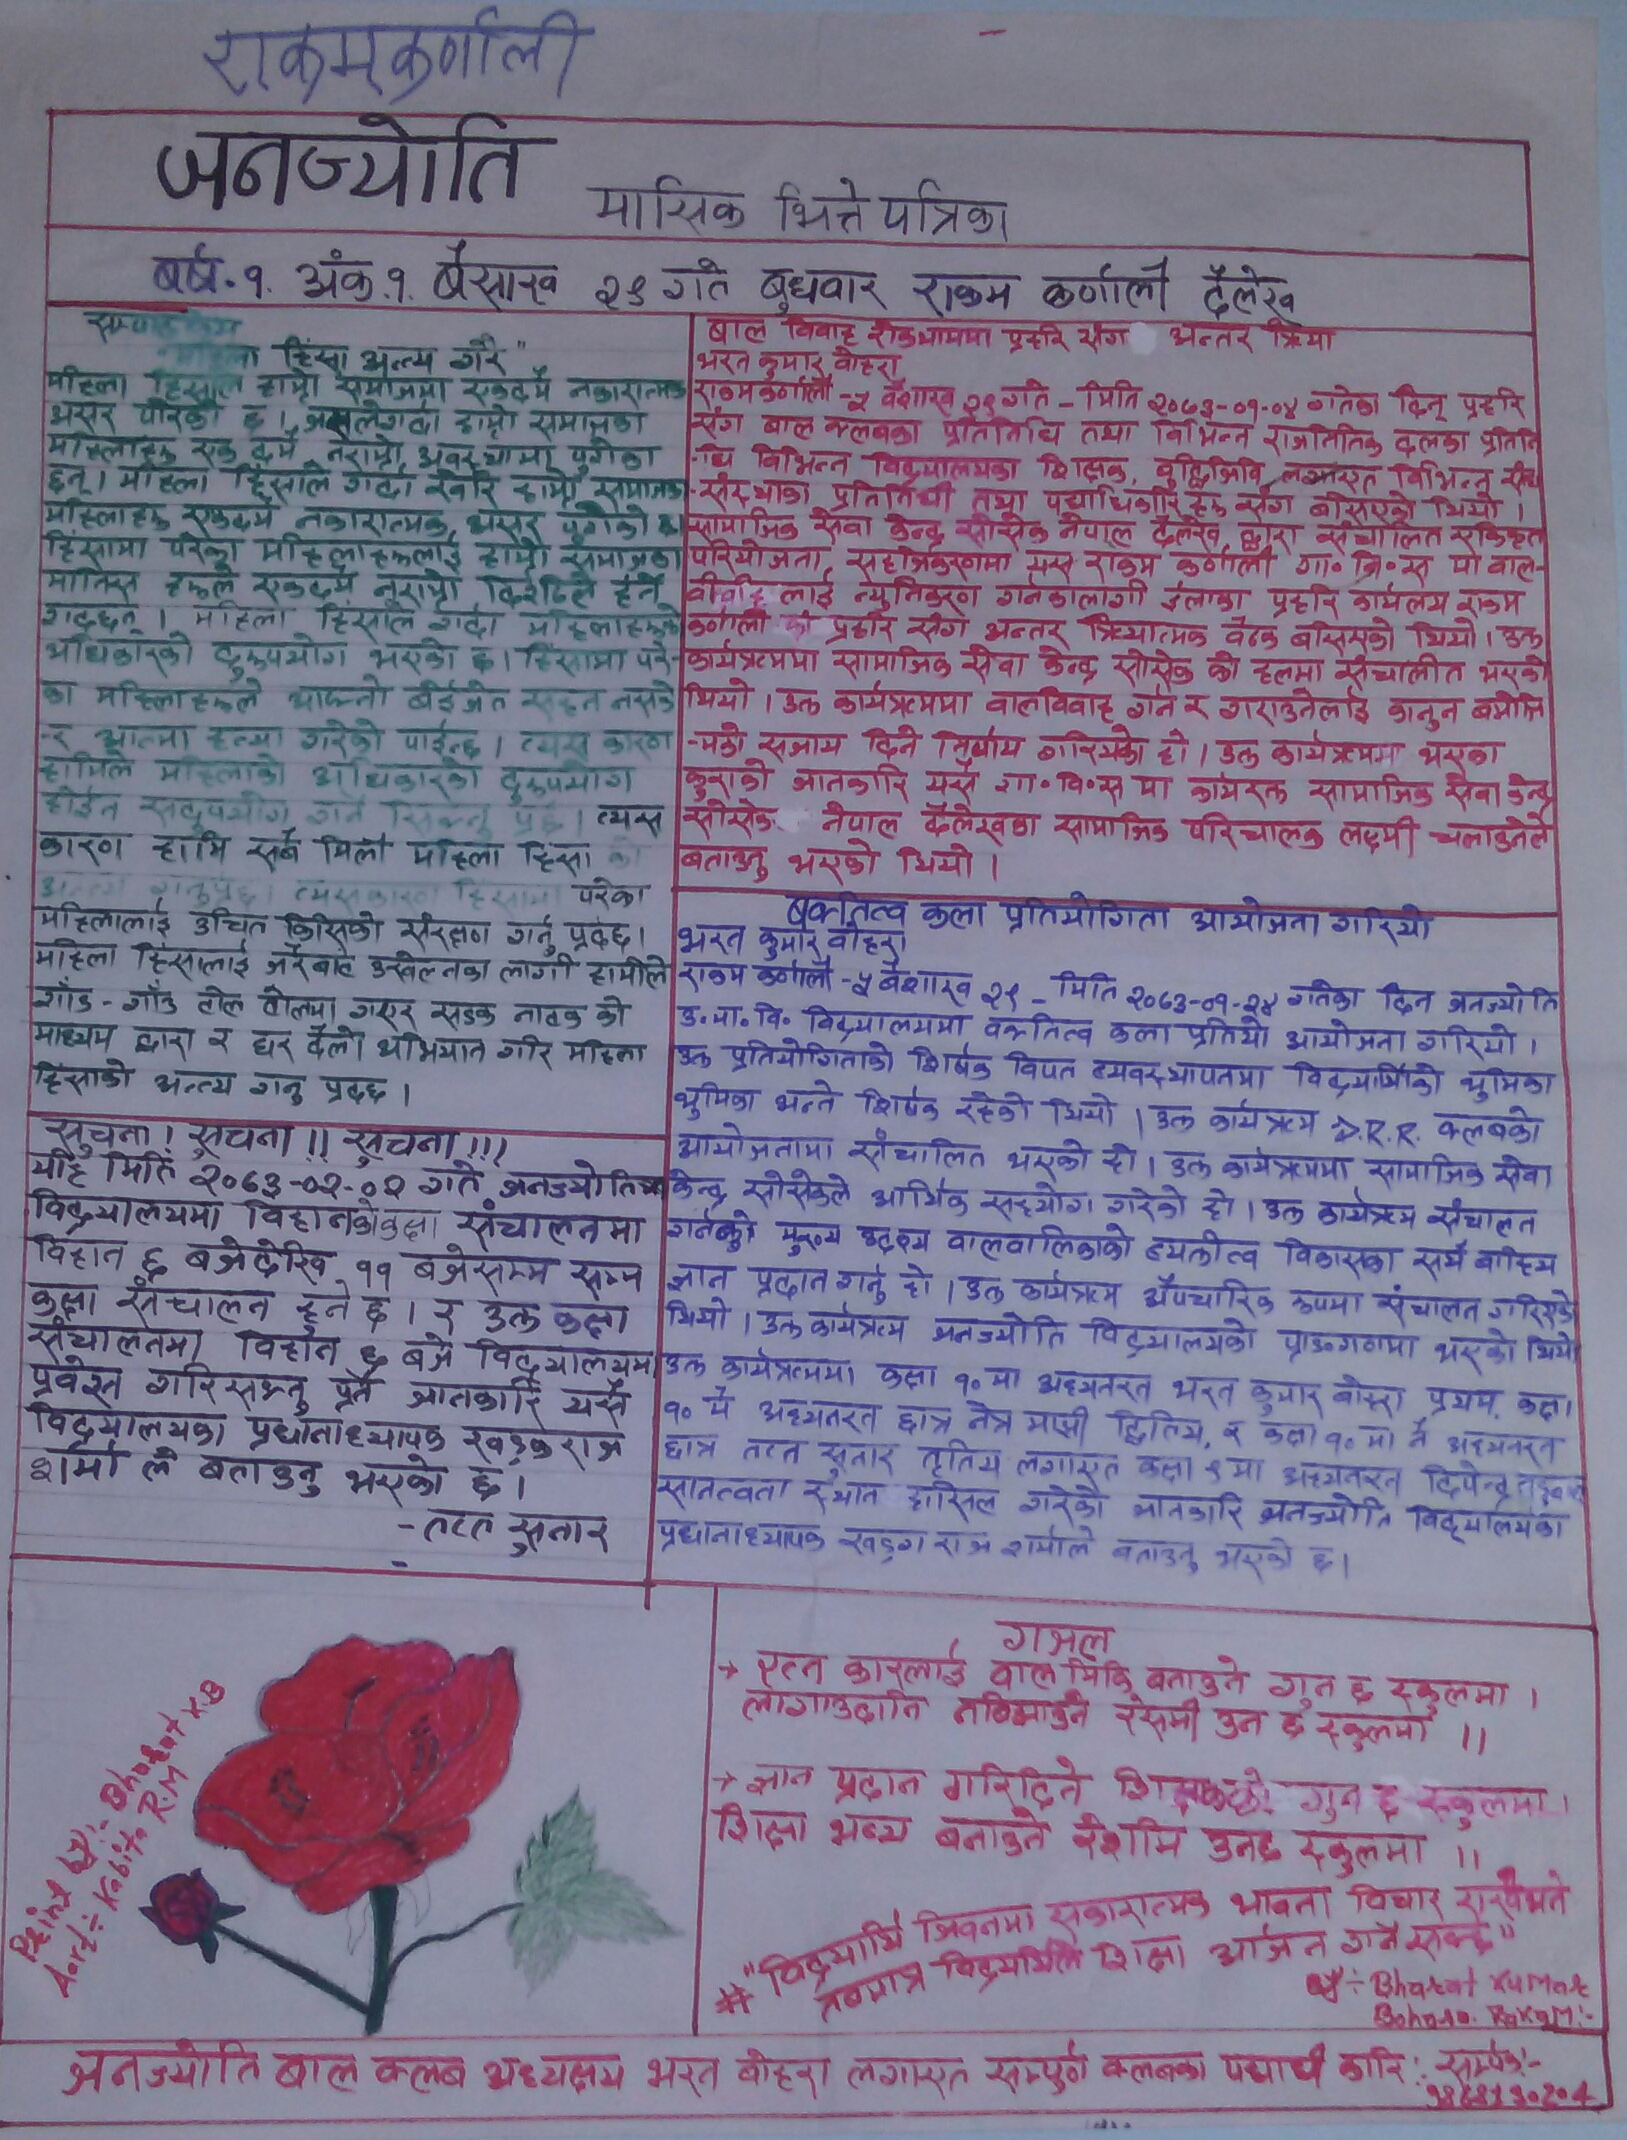 राकमकर्णाली
जनज्योति मासिक भित्ते पत्रिका
बर्ष.१. अंक.१. बैसाख २९ गते बुधवार राकम कर्णाली दैलेख
हिंसा अन्त्य गरे"
महिला हिंसाले हाम्रो समाजमा एकदमै नकारात्मक
असर पारेको छ। जसलेगर्दा हाम्रो समाजका
महिलाहरु एकदमै नराम्रो अवस्थामा पुगेका
छन्। महिला हिंसाले गर्दा खेरि हाम्रो समाजका
महिलाहरु एकदमै नकारात्मक असर पुगेको छ।
हिंसामा परेका महिलाहरुलाई हाम्रो समाजका
मानिस हरुले एकदमै नराम्रो दृिष्टिले हेर्ने
गर्दछन्। महिला हिंसाले गर्दा महिलाहरुको
अधिकारको दुरुपयोग भएको छ। हिंसामा परे-
का महिलाहरुले आफ्नो बेईजत सहन नसके
-र आत्मा हत्या गरेको पाईन्छ। त्यस कारण
हामिले महिलाको अधिकारको दुरुपयोग
होईन सदुपयोग गर्न सिक्नु पर्छ। त्यस
कारण हामि सबै मिली महिला हिंसा को
अन्त्य गर्नुपर्छ। त्यसकारण हिंसामा परेका
महिलालाई उचित किसिको संरक्षण गर्नु प्रदछ।
महिला हिंसालाई जरैबाट उखेल्नका लागी हामीले
गाँउ - गाँउ टोल टोलमा गएर सडक नाटक को
माध्यम द्वारा र घर दैलो अभियान गरि महिला
हिंसाको अन्त्य गनु प्रदछ।
सुचना! सुचना!! सुचना!!!
यहि मिति २०७३-०२-०२ गते जनज्योति
विद्यालयमा विहानकोकक्षा संचालनमा
विहान ६ बजेदेखि ११ बजेसम्म सम्म
कक्षा संचालन हुने छ। र उक्त कक्षा
संचालनमा विहान ६ बजे विद्यालयमा
प्रवेस गरिसक्नु पर्ने जानकारि यसै
विद्यालयका प्रधानाध्यापक खड्क राज
शर्मा ले बताउनु भएको छ।
सुनार
बाल विवाह रोकथाममा प्रहरि संग अन्तर क्रिया
भरत कुमार बोहरा
राकमकर्णाली -५ वैशाख २९ गते - मिति २०७३-०१-०४ गतेका दिन् प्रहरि
संग बाल क्लबका प्रतिनिधि तथा विभिन्न राजनितिक दलका प्रतिनि
-धि विभिन्न विद्यालयका शिक्षक, बुद्धिजिवि, लगाएत विभिन्न संघ
-संस्थाका प्रतिनिधी तथा पद्याधिकारि हरु संग बसिएको थियो।
सामाजिक सेवा केन्द्र सोसेक नेपाल दैलेख द्वारा संचालित एकिकृत
परियोजना सहजिकरणमा यस राकम कर्णाली गा॰ बि॰स मा बाल-
वीवाह लाई न्युनिकरण गर्नकालागी ईलाका प्रहरि कार्यलय राकम
कर्णाली को प्रहरि संग अन्तर क्रियात्मक बैठक बसिएको थियो। उक्त
कार्यक्रममा सामाजिक सेवा केन्द्र सोसेक को हलमा संचालीत भएको
थियो। उक्त कार्यक्रममा बालविवाह गर्ने र गराउनेलाई कानुन बमोजि
-मको सजाय दिने निर्णय गरियको हो। उक्त कार्यक्रममा भएका
कुराको जानकारि यसै गा॰वि॰स मा कार्यरत सामाजिक सेवा केन्द्र
सोसेक नेपाल दैलेखका सामाजिक परिचालक लक्ष्मी चलाउनेले
बताउनु भएको थियो।
बक्तित्व कला प्रतियोगिता आयोजना गरियो
भरत कुमार बोहरा
राकम कर्णाली -५ बैशाख २९ - मिति २०७३-०१-२४ गतेका दिन जनज्योति
उ.मा.वि. विद्यालयमा वक्तित्व कला प्रतियो आयोजना गरियो।
उक्त प्रतियोगिताको शिर्षक विपत व्यवस्थापनमा विद्यार्थिको भुमिका
भुमिका भन्ने शिर्षक रहेको थियो। उक्त कार्यक्रम D.R.R. क्लबको
आयोजनामा संचालित भएको हो। उक्त कार्यक्रममा सामाजिक सेवा
केन्द्र सोसेकले आर्थिक सहयोग गरेको हो। उक्त कार्यक्रम संचालन
गर्नको मुख्य उद्देश्य बालबालिकाको व्यक्तीत्व विकासका साथै बाहिय
ज्ञान प्रदान गर्नु हो। उक्त कार्यक्रम औपचारिक रुपमा संचालन गरिएको
थियो। उक्त कार्यक्रम जनज्योति विद्यालयको प्राङगणमा भएको थियो
उक्त कार्यक्रममा कक्षा १० मा अध्यनरत भरत कुमार बोहरा प्रथम, कक्षा
१० मै अध्यनरत छात्र नेत्र माझी द्वितिय, र कक्षा १० मा नै अध्यनरत
छात्र सुनार तृतिय लगाएत कक्षा ९ मा अध्यनरत दिपेन्द्र
सान्तवना स्थान हासिल गरेको जानकारि जनज्योति विद्यालयका
प्रधानाध्यापक खड्ग राज शर्माले बताउनु भएको छ।
Print by:- Bharat K.B
Aart:- Kabita R.M
गजल
→ रत्न कारलाई वाल्मिकि बनाउने गुन छ स्कुलमा।
रेसमी उन छ स्कुलमा ॥
→ ज्ञान प्रदान गरिदिने शिक्षकको गुन छ स्कुलमा।
शिक्षा भव्य बनाउने रेशमि उनछ स्कुलमा ॥
# "विद्यार्थि जिवनमा सकारात्मक भावना विचार राखेमात्रे
विद्यार्थिले शिक्षा आर्जन गर्न सक्छ"
By:- Bharat Kumar
Bohara. Rakam:-
जनज्योति बाल क्लब अध्यक्षय भरत बोहरा लगाएत सम्पुर्ण क्लबका पद्याधी कारि: सर्म्पक:-